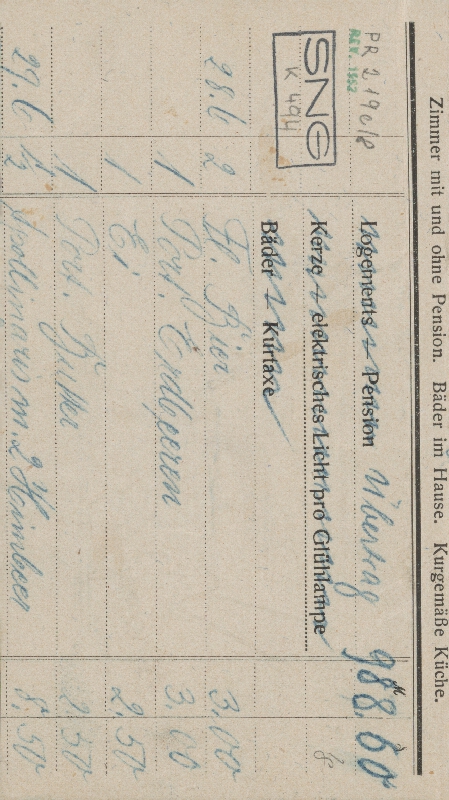 Zimmer mit und ohne Pension. Bäder im Hause. Kurgemäße Küche.
PR 2 19c/8
REV. 1552
SNG
K 494
Logements Pension Übertrag 988.60
Kerze elektrisches Licht pro Glühlampe
Bäder Kurtaxe
28.6 2 Fl. Bier 3.00
1 Port. Erdbeeren 3.00
1 Ei 2.50
1 Port. Butter 2.50
29.6 1/2 Apollinaris m 2 Himbeer 8.50